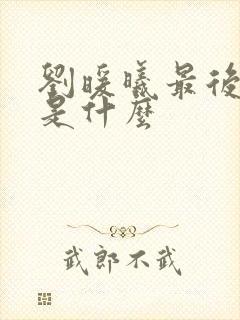 劉暖曦最後
是什麼
武郎不武